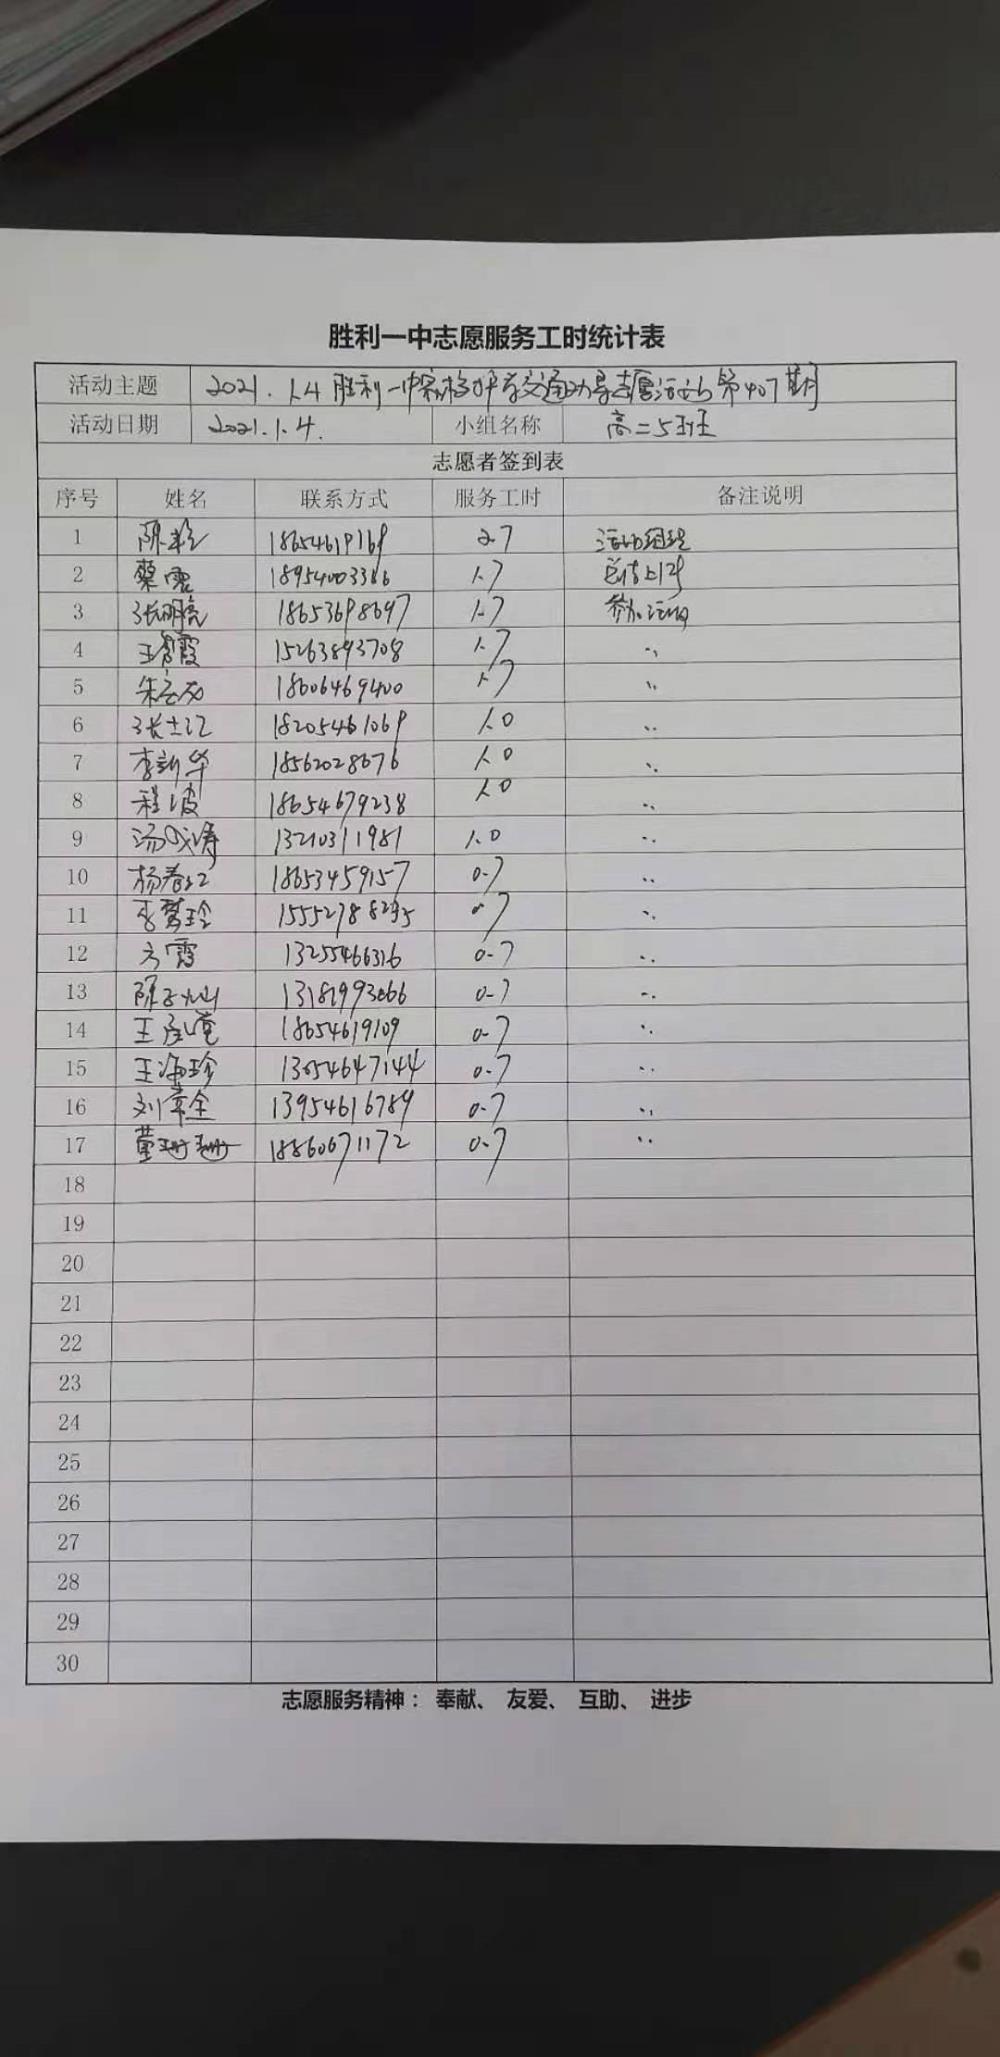 胜利一中志愿服务工时统计表
活动主题 2021.1.4胜利一中家校护学交通劝导志愿活动第407期
活动日期 2021.1.4. 小组名称 高二5班
志愿者签到表
序号 姓名 联系方式 服务工时 备注说明
1 陈 18654619169 2.7 活动组织
2 蔡霞 18954003386 1.7 总结上传
3 张明亮 18653698697 1.7 参加活动
4 王秀霞 15263893708 1.7 ..
5 朱 18606469400 1.7 ..
6 张士江 18205461069 1.0 ..
7 李新华 18562028676 1.0 ..
8 程波 18654679238 1.0 ..
9 汤成涛 13210311981 1.0 ..
10 杨春江 18653459157 0.7 ..
11 玲 15552788235 0.7 ..
12 方霞 13255466316 0.7 ..
13 陈 0.7 ..
14 王 18654619109 0.7 ..
15 王海珍 13654647144 0.7 ..
16 刘常全 13954616789 0.7 ..
17 董珊珊 18860671172 0.7 ..
18
19
20
21
22
23
24
25
26
27
28
29
30
志愿服务精神： 奉献、 友爱、 互助、 进步